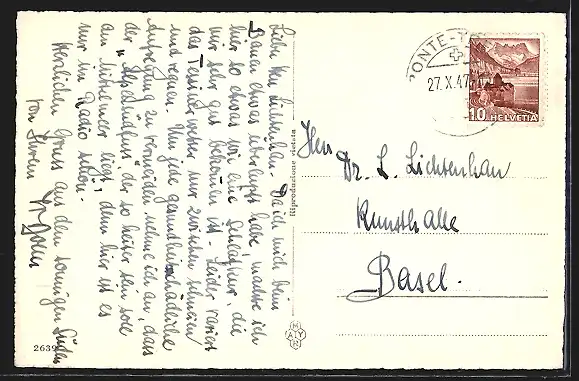 Lieber Herr Lichtenhan. Da ich mich beim
Bauen etwas überlupft habe, mache ich
hier so etwas wie eine Schlafkur, die
mir sehr gut bekommen ist. Leider variert
das Tessinerwetter nur zwischen schneien
und regnen. Um jede gesundheitsschädliche
Aufregung zu vermeiden nehme ich an, dass
der "Alpensüdfuss", der so heiter sein soll
am Mittelmeer liegt, denn hier ist es
nur im Radio schön.
Herzlichen Gruss aus dem sonnigen Süden
von Ihrem
2639
Riproduzione vietata
MAYR
PONTE-T
27.X.47
10 HELVETIA
Herrn
Dr. L. Lichtenhan
Kunsthalle
Basel.